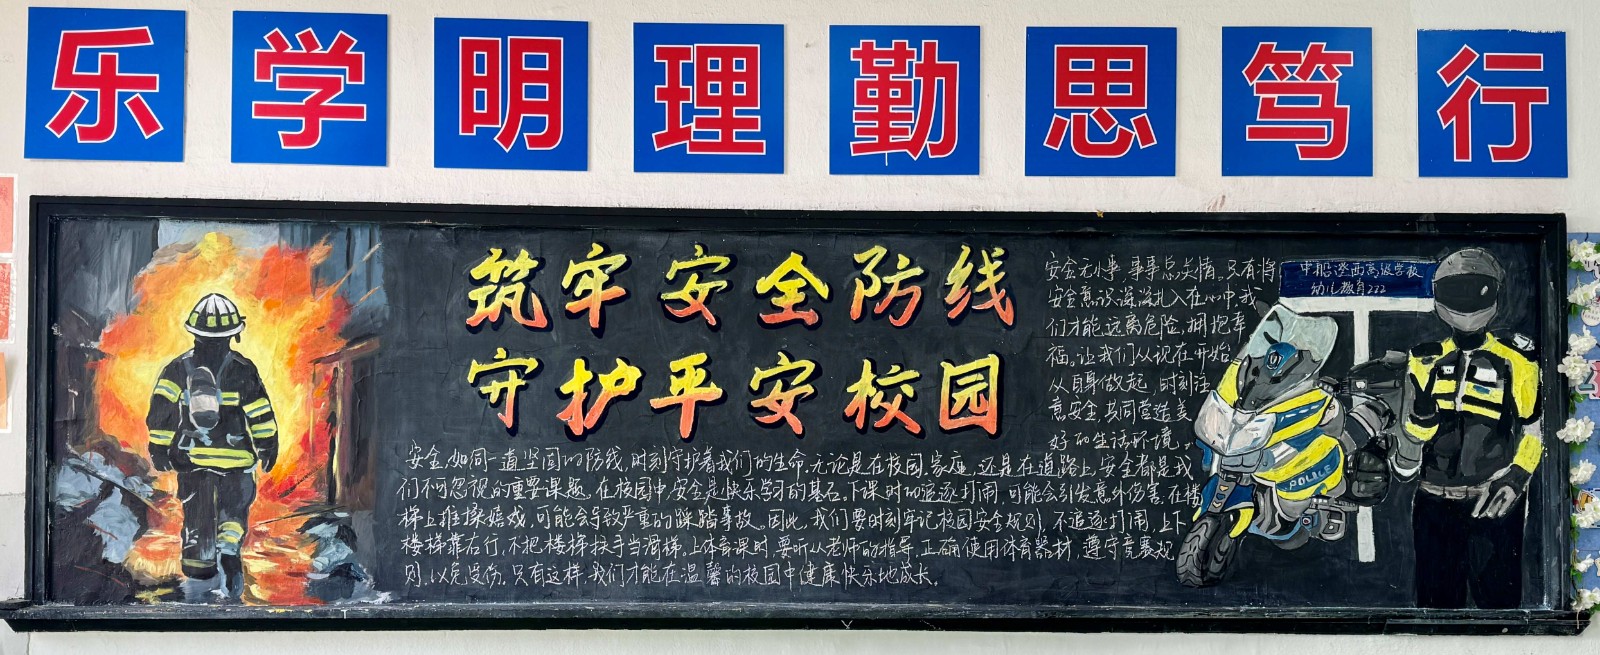 乐学明理勤思笃行
筑牢安全防线
守护平安校园
安全,如同一道坚固的防线,时刻守护着我们的生命。无论是在校园、家庭,还是在道路上,安全都是我
们不可忽视的重要课题。在校园中,安全是快乐学习的基石。下课时的追逐打闹,可能会引发意外伤害;在楼
梯上推搡嬉戏,可能会导致严重的踩踏事故。因此,我们要时刻牢记校园安全规则,不追逐打闹,上下
楼梯靠右行,不把楼梯扶手当滑梯。上体育课时,要听从老师的指导,正确使用体育器材,遵守竞赛规
则,以免受伤。只有这样,我们才能在温馨的校园中健康快乐地成长。
安全无小事,事事总关情。只有将
安全意识深深扎入在心中,我
们才能远离危险,拥抱幸
福。让我们从现在开始,
从自身做起,时刻注
意安全,共同营造美
好的生活环境。
高级学校
幼儿教育222
POLICE